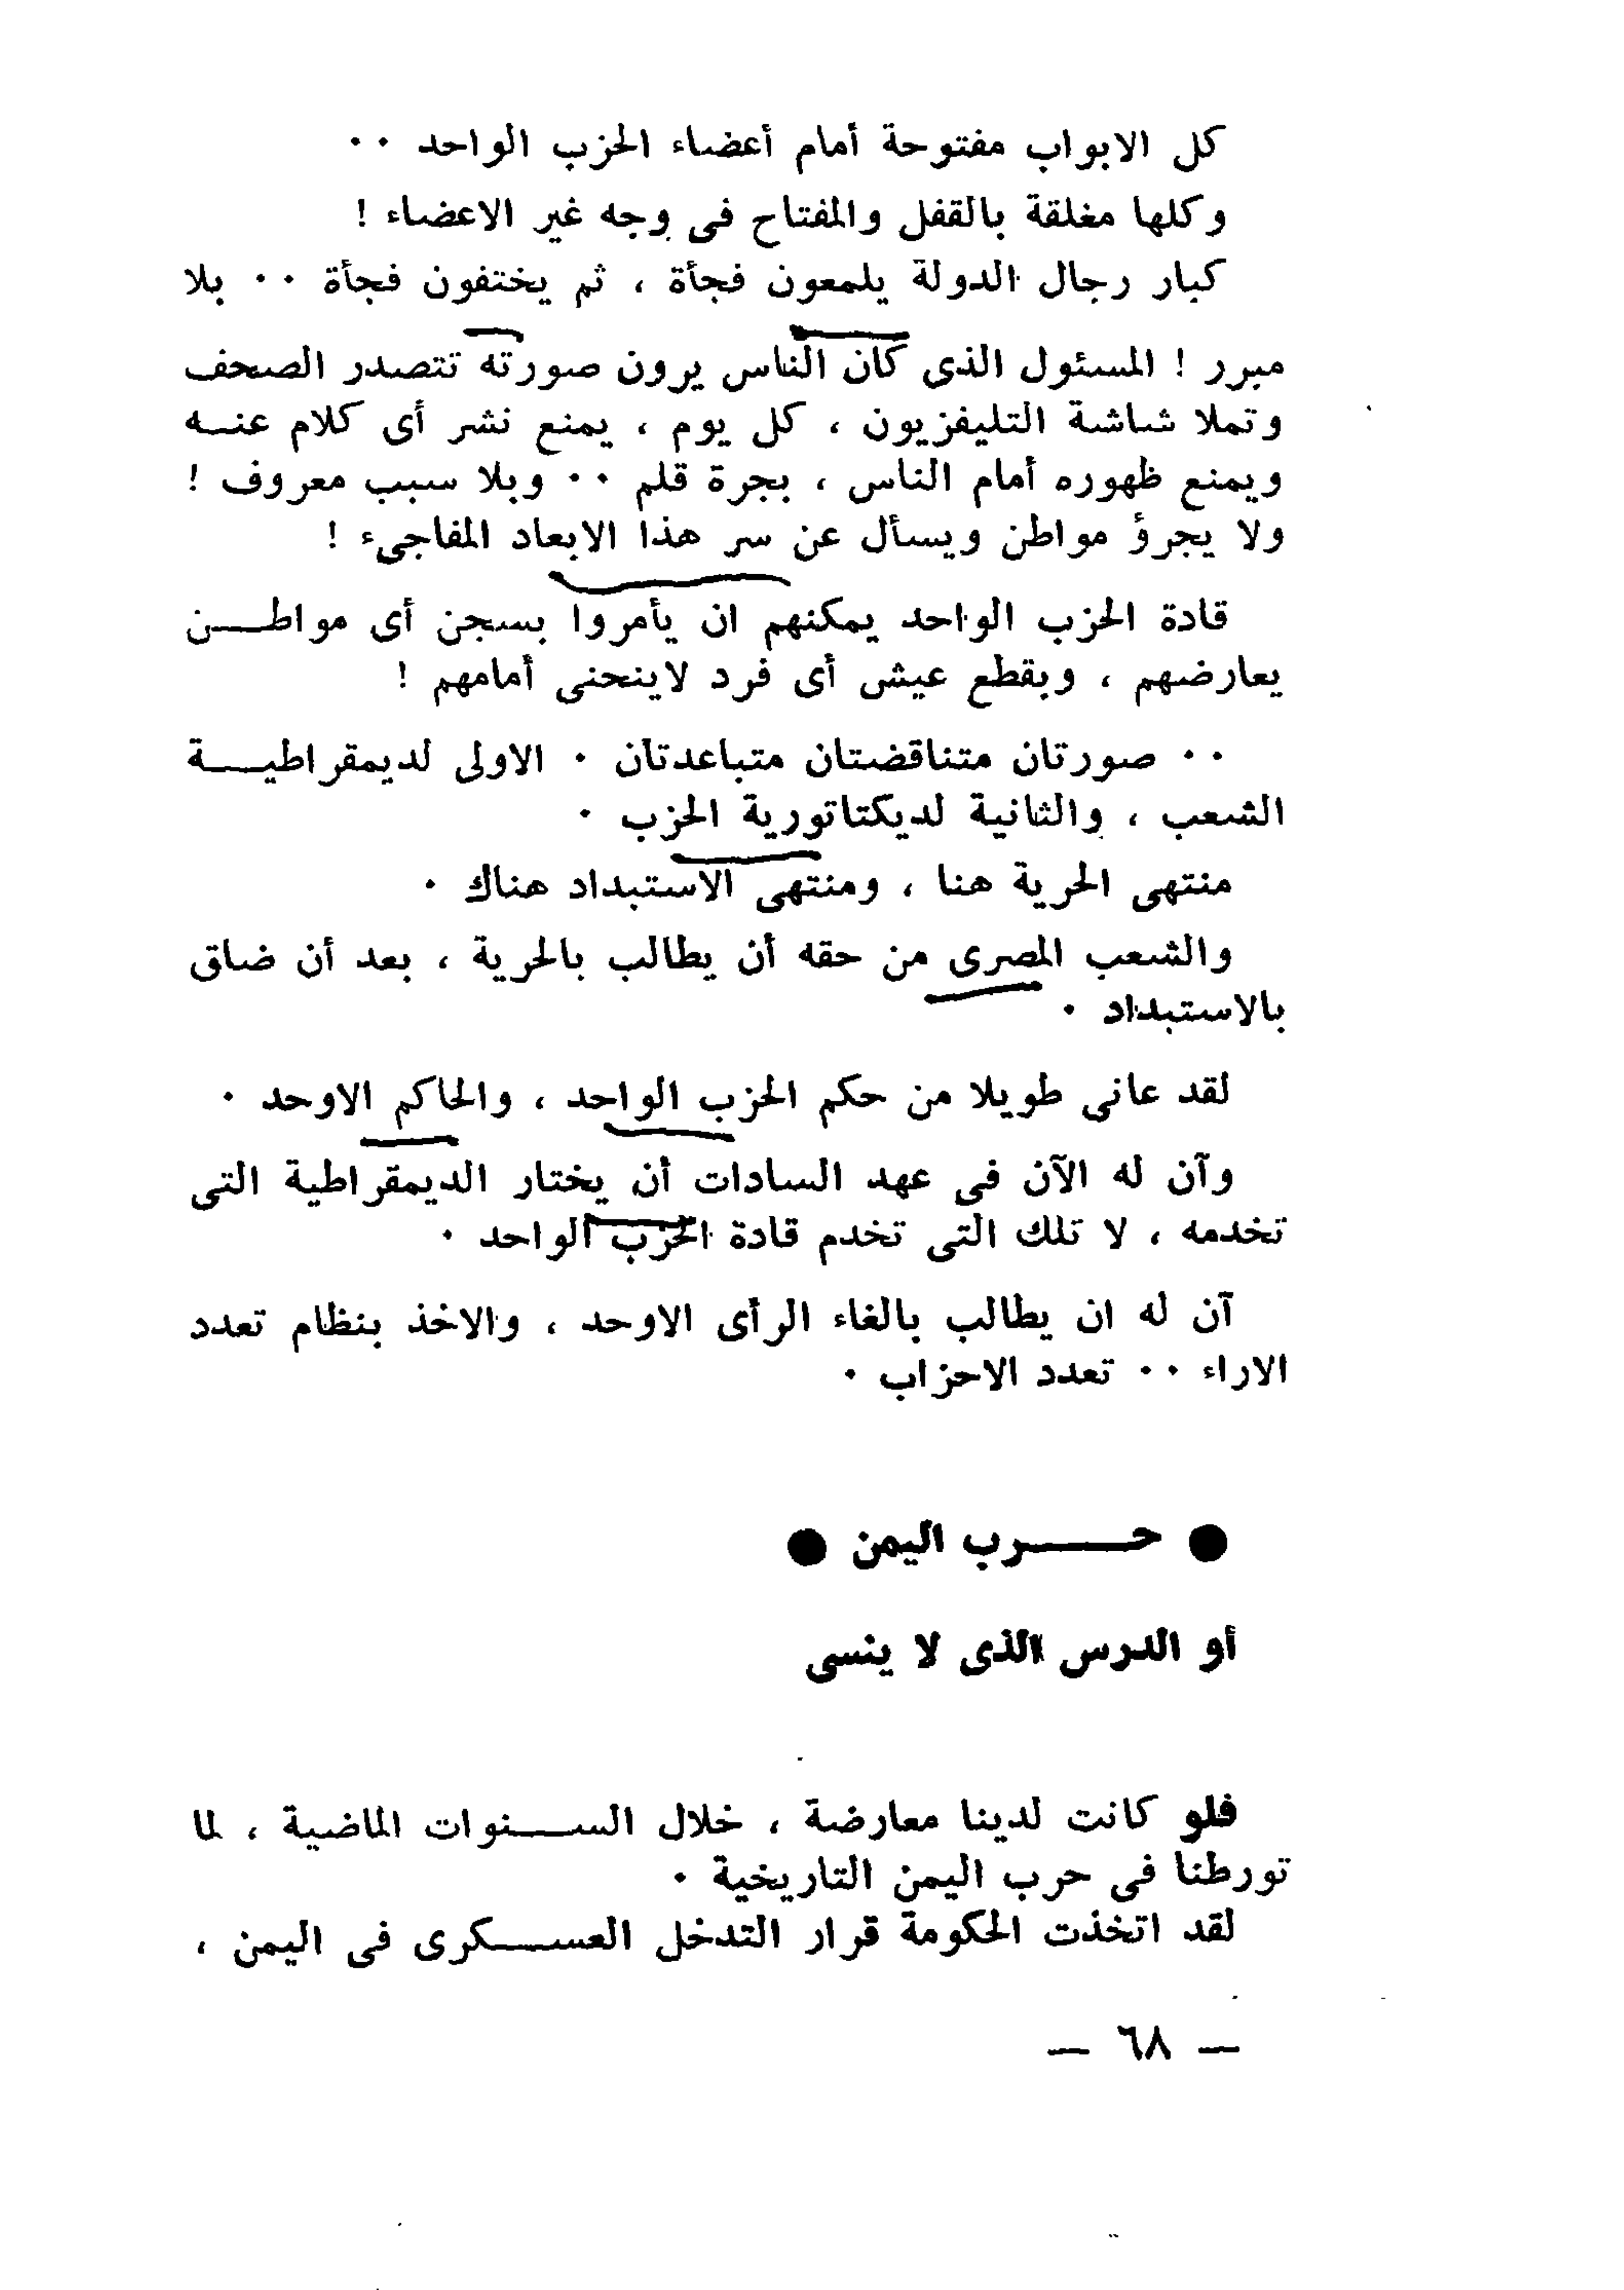 كل الابواب مفتوحة أمام أعضاء الحزب الواحد ٠٠
وكلها مغلقة بالقفل والمفتاح فى وجه غير الاعضاء !
كبار رجال الدولة يلمعون فجأة ، ثم يختفون فجأة ٠٠ بلا
مبرر ! المسئول الذى كان الناس يرون صورته تتصدر الصحف
وتملا شاشة التليفزيون ، كل يوم ، يمنع نشر أى كلام عنه
ويمنع ظهوره أمام الناس ، بجرة قلم ٠٠ وبلا سبب معروف !
ولا يجرؤ مواطن ويسأل عن سر هذا الابعاد المفاجىء !
قادة الحزب الواحد يمكنهم ان يأمروا بسجن أى مواطن
يعارضهم ، وبقطع عيش أى فرد لاينحنى أمامهم !
٠٠ صورتان متناقضتان متباعدتان ٠ الاولى لديمقراطية
الشعب ، والثانية لديكتاتورية الحزب ٠
منتهى الحرية هنا ، ومنتهى الاستبداد هناك ٠
والشعب المصرى من حقه أن يطالب بالحرية ، بعد أن ضاق
بالاستبداد ٠
لقد عانى طويلا من حكم الحزب الواحد ، والحاكم الاوحد ٠
وآن له الآن فى عهد السادات أن يختار الديمقراطية التى
تخدمه ، لا تلك التى تخدم قادة الحزب الواحد ٠
آن له ان يطالب بالغاء الرأى الاوحد ، والاخذ بنظام تعدد
الاراء ٠٠ تعدد الاحزاب ٠
● حرب اليمن ●
أو الدرس الذى لا ينسى
فلو كانت لدينا معارضة ، خلال السنوات الماضية ، لما
تورطنا فى حرب اليمن التاريخية ٠
لقد اتخذت الحكومة قرار التدخل العسكرى فى اليمن ،
— ٦٨ —